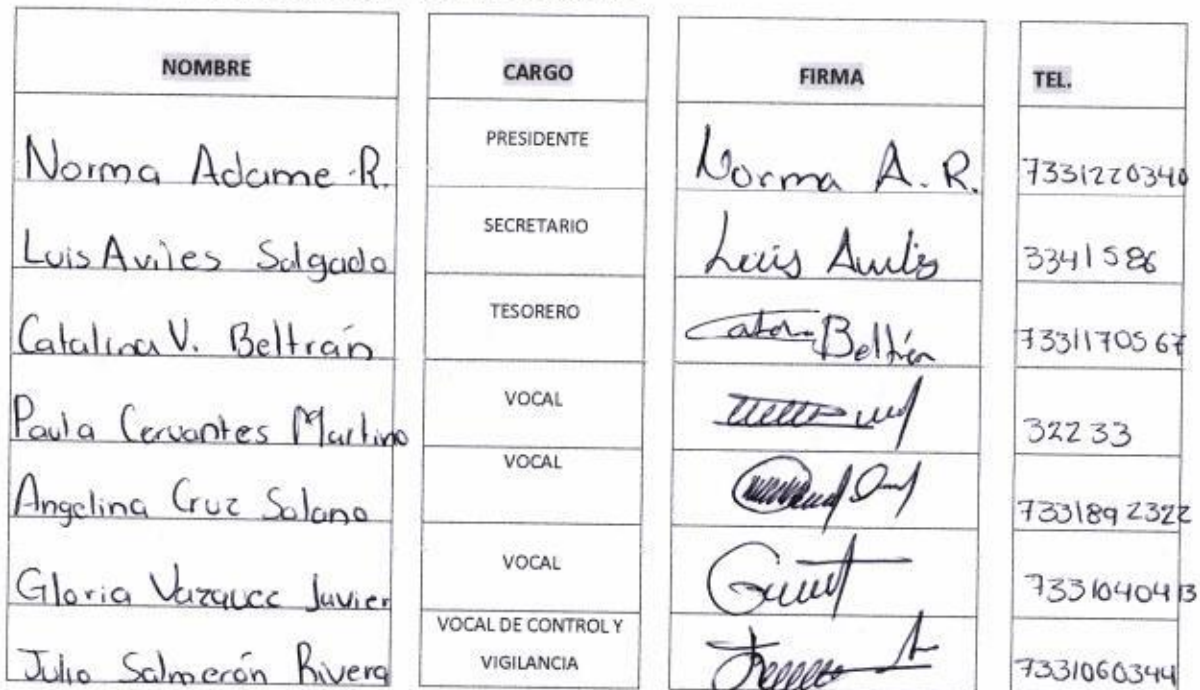 NOMBRE CARGO FIRMA TEL.
Norma Adame R. PRESIDENTE Norma A. R. 7331220340
Luis Aviles Salgado SECRETARIO Luis Aviles 3341586
Catalina V. Beltrán TESORERO Beltrán 7331170567
Paula Cervantes Martino VOCAL 32233
Angelina Cruz Solano VOCAL 7331892322
Gloria Vazquez Javier VOCAL 7331040413
VOCAL DE CONTROL Y
Julio Salmerón Rivera VIGILANCIA 7331060344